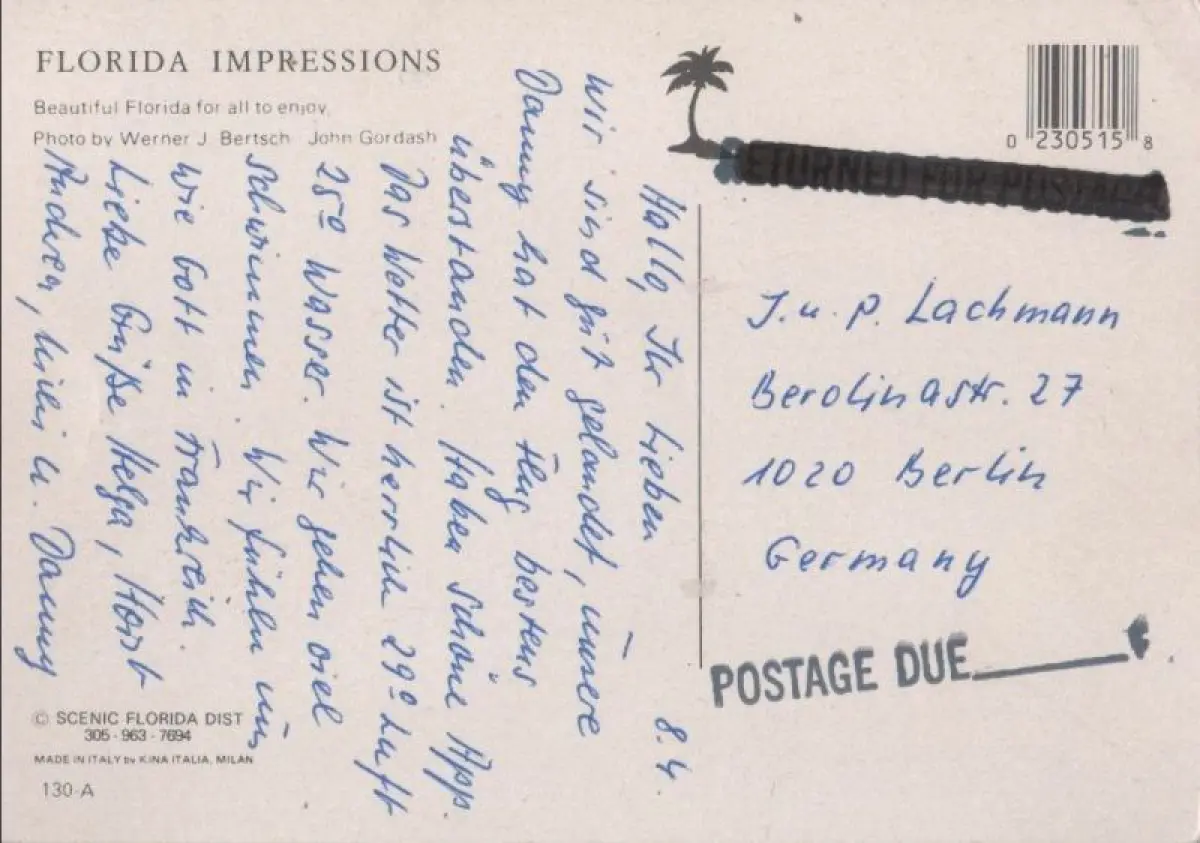 FLORIDA IMPRESSIONS
Beautiful Florida for all to enjoy.
Photo by Werner J. Bertsch John Gordash
Hallo, Ihr Lieben 8.4
Wir sind gut gelandet, unsere
Danny hat den Flug bestens
überstanden. Haben schöne App.
Das Wetter ist herrlich 29º Luft
25º Wasser. Wir gehen viel
schwimmen. Wir fühlen uns
wie Gott in Frankreich.
Liebe Grüße Helga, Horst
Andrea, u. Danny
© SCENIC FLORIDA DIST
305-963-7694
MADE IN ITALY by KINA ITALIA, MILAN
130-A
0 230515 8
RETURNED FOR POSTAGE
J. u. P. Lachmann
Berolinastr. 27
1020 Berlin
Germany
POSTAGE DUE